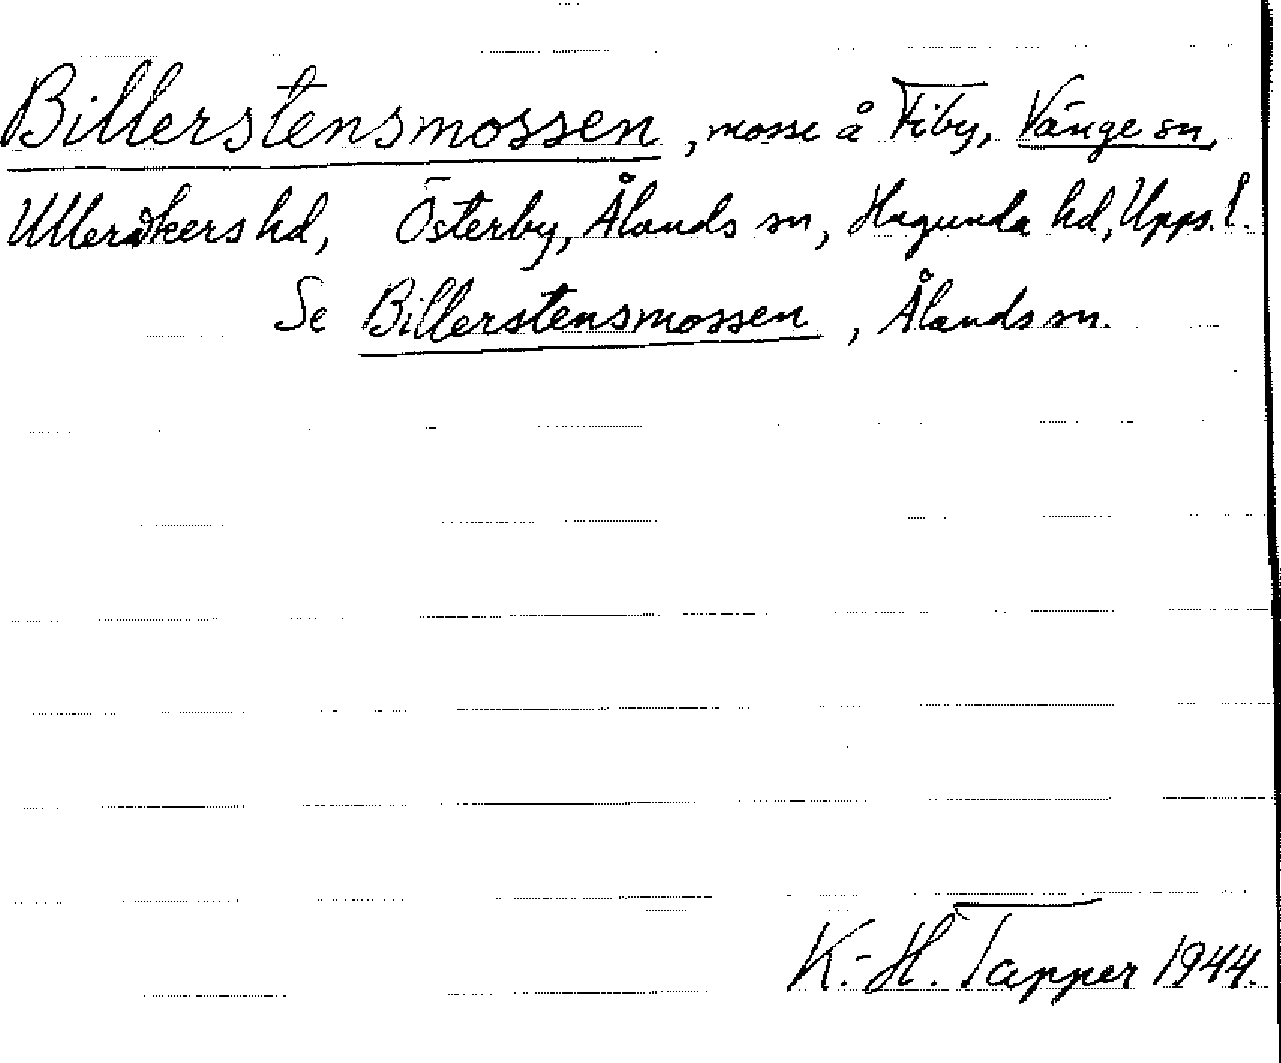 Billerstensmossen, mosse å Fiby, Vänge sn,
Ulleråkers hd, Österby, Ålands sn, Hagunda hd, Upps. l.
Se Billerstensmossen, Ålands sn.
K.-H. Tapper 1944.